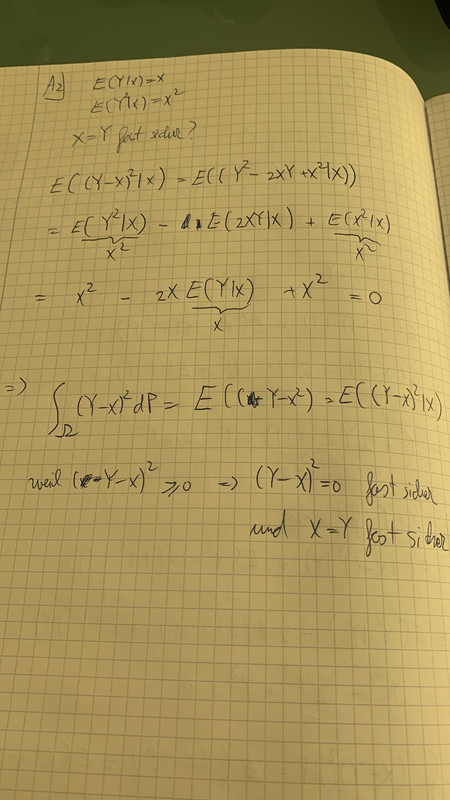 A2) E(Y|X)=X
E(Y²|X)=X²
X=Y fast sicher?
E((Y-X)²|X) = E((Y²-2XY+X²|X))
= E(Y²|X) - E(2XY|X) + E(X²|X)
X² X²
= X² - 2X E(Y|X) + X² = 0
X
=> ∫_Ω (Y-X)² dP = E((Y-X²) = E((Y-X)²|X)
weil (Y-X)² ≥ 0 => (Y-X)² = 0 fast sicher
und X=Y fast sicher